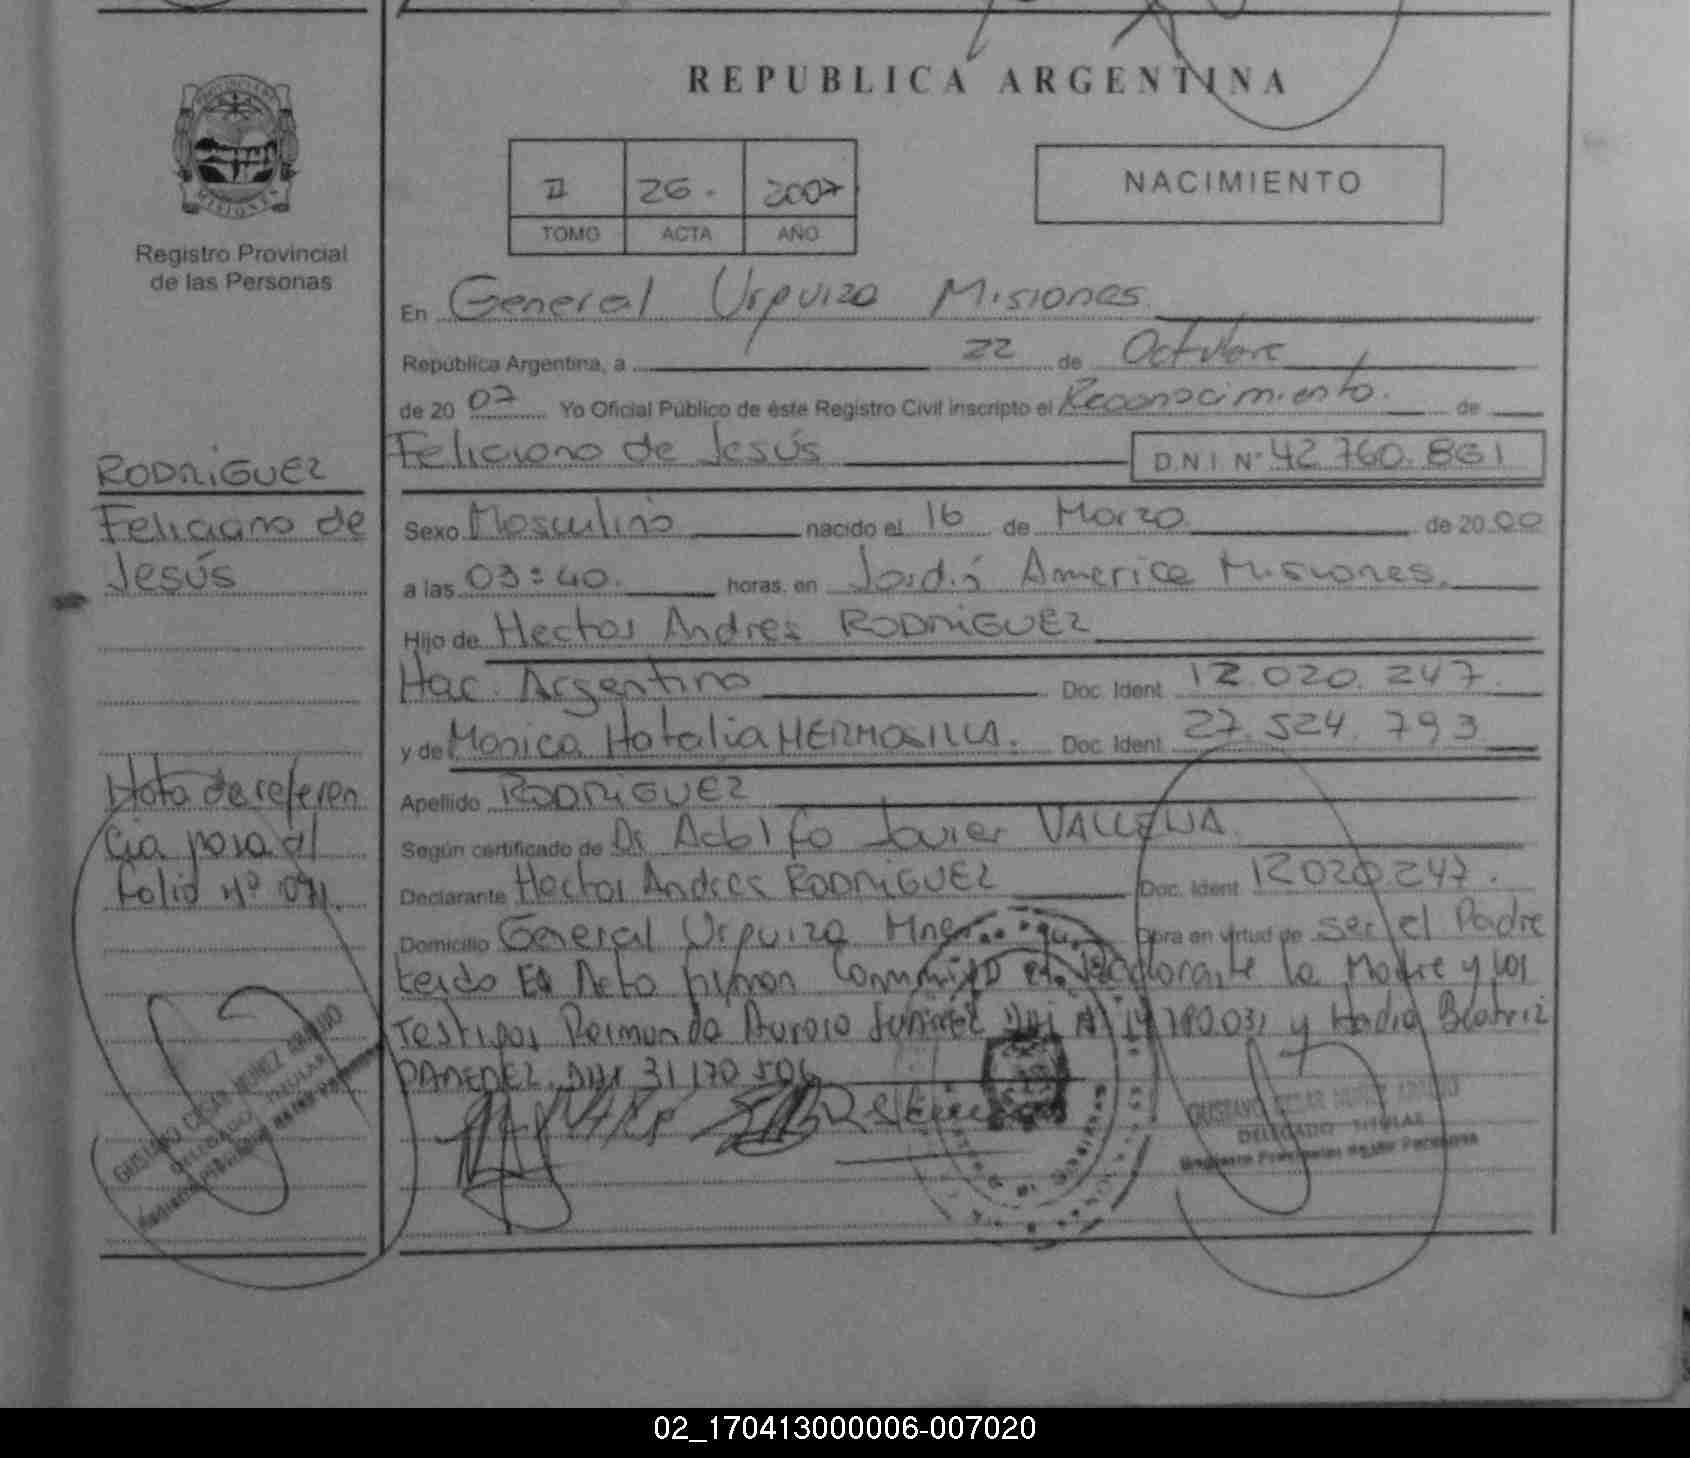 REPUBLICA ARGENTINA
PROVINCIA DE MISIONES
Registro Provincial
de las Personas
II 26. 2007
TOMO ACTA AÑO
NACIMIENTO
En General Urquiza Misiones
República Argentina, a 22 de Octubre
de 20 07 Yo Oficial Público de éste Registro Civil inscripto el Reconocimiento. de
Feliciano de Jesús D.N.I Nº 42.760.861
RODRIGUEZ
Feliciano de
Jesús
Sexo Masculino nacido el 16 de Marzo de 20 00
a las 03:40. horas, en Jardín America Misiones.
Hijo de Hector Andres RODRIGUEZ
Nac. Argentina Doc. Ident. 12.020.247.
y de Monica Natalia HERMOSILLA. Doc. Ident. 27.524.793
Apellido RODRIGUEZ
Según certificado de Dr Adolfo Javier
Declarante Hector Andres RODRIGUEZ Doc. Ident. 12020247.
Domicilio General Urquiza Mnes Obra en virtud de ser el Padre
Acta firman el declarante la Madre y los
Testigos y Nadia Beatriz
DNI 31 170 506
Nota de referen
cia para al
folio Nº 071.
GUSTAVO CESAR NUÑEZ ARAUJO
DELEGADO TITULAR
Registro Provincial de las Personas
GUSTAVO CESAR NUÑEZ ARAUJO
DELEGADO TITULAR
Registro Provincial de las Personas
02_170413000006-007020